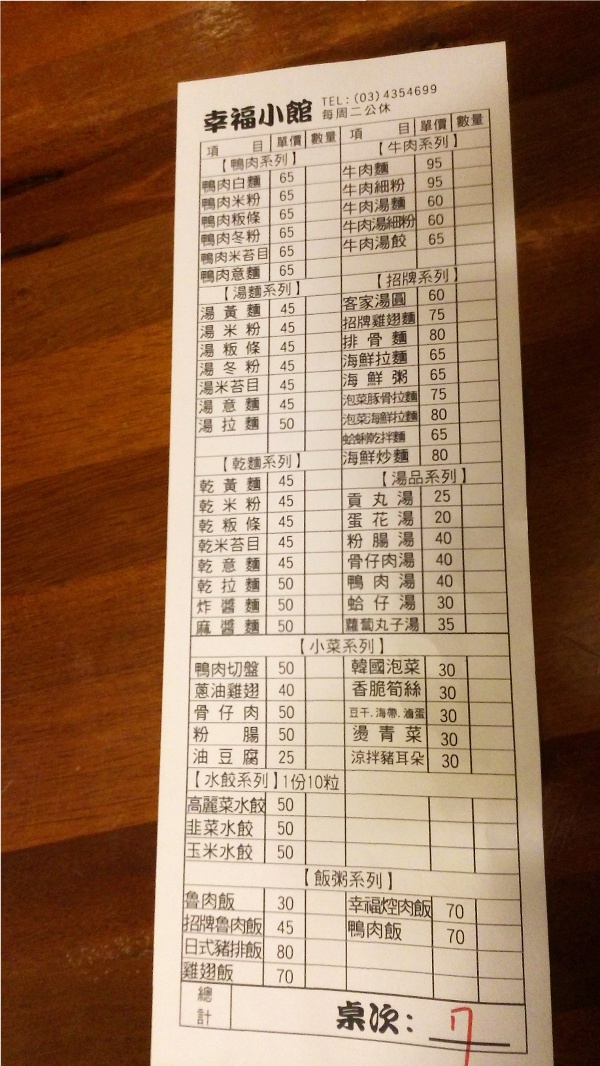 幸福小館 TEL:(03)4354699
每周二公休
項 目 單價 數量 項 目 單價 數量
【鴨肉系列】
鴨肉白麵 65
鴨肉米粉 65
鴨肉粄條 65
鴨肉冬粉 65
鴨肉米苔目 65
鴨肉意麵 65
【湯麵系列】
湯黃麵 45
湯米粉 45
湯粄條 45
湯冬粉 45
湯米苔目 45
湯意麵 45
湯拉麵 50
【乾麵系列】
乾黃麵 45
乾米粉 45
乾粄條 45
乾米苔目 45
乾意麵 45
乾拉麵 50
炸醬麵 50
麻醬麵 50
【牛肉系列】
牛肉麵 95
牛肉細粉 95
牛肉湯麵 60
牛肉湯細粉 60
牛肉湯餃 65
【招牌系列】
客家湯圓 60
招牌雞翅麵 75
排骨麵 80
海鮮拉麵 65
海鮮粥 65
泡菜豚骨拉麵 75
泡菜海鮮拉麵 80
蛤蜊乾拌麵 65
海鮮炒麵 80
【湯品系列】
貢丸湯 25
蛋花湯 20
粉腸湯 40
骨仔肉湯 40
鴨肉湯 40
蛤仔湯 30
蘿蔔丸子湯 35
【小菜系列】
鴨肉切盤 50 韓國泡菜 30
蔥油雞翅 40 香脆筍絲 30
骨仔肉 50 豆干.海帶.滷蛋 30
粉腸 50 燙青菜 30
油豆腐 25 涼拌豬耳朵 30
【水餃系列】1份10粒
高麗菜水餃 50
韭菜水餃 50
玉米水餃 50
【飯粥系列】
魯肉飯 30 幸福焢肉飯 70
招牌魯肉飯 45 鴨肉飯 70
日式豬排飯 80
雞翅飯 70
總計 桌次: 7